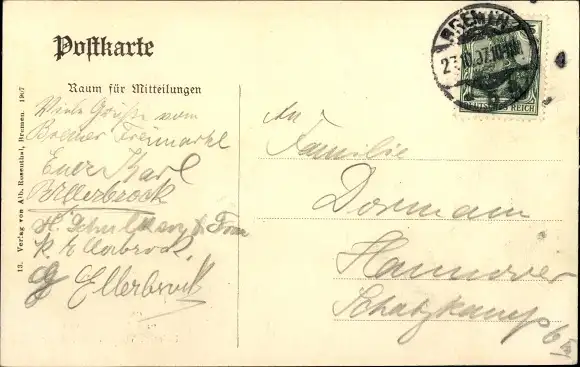 Postkarte
Raum für Mitteilungen
Viele Grüße vom
Bremer Freimarkt
Euer Karl
Ellerbrock
H. Schulken & Frau
K. Ellerbrock.
Ellerbrock
13. Verlag von Alb. Rosenthal, Bremen. 1907
BREMEN
23.10.07.10-11N
DEUTSCHES REICH
An
Familie
Dormann
Hannover
Schatzkamp 6